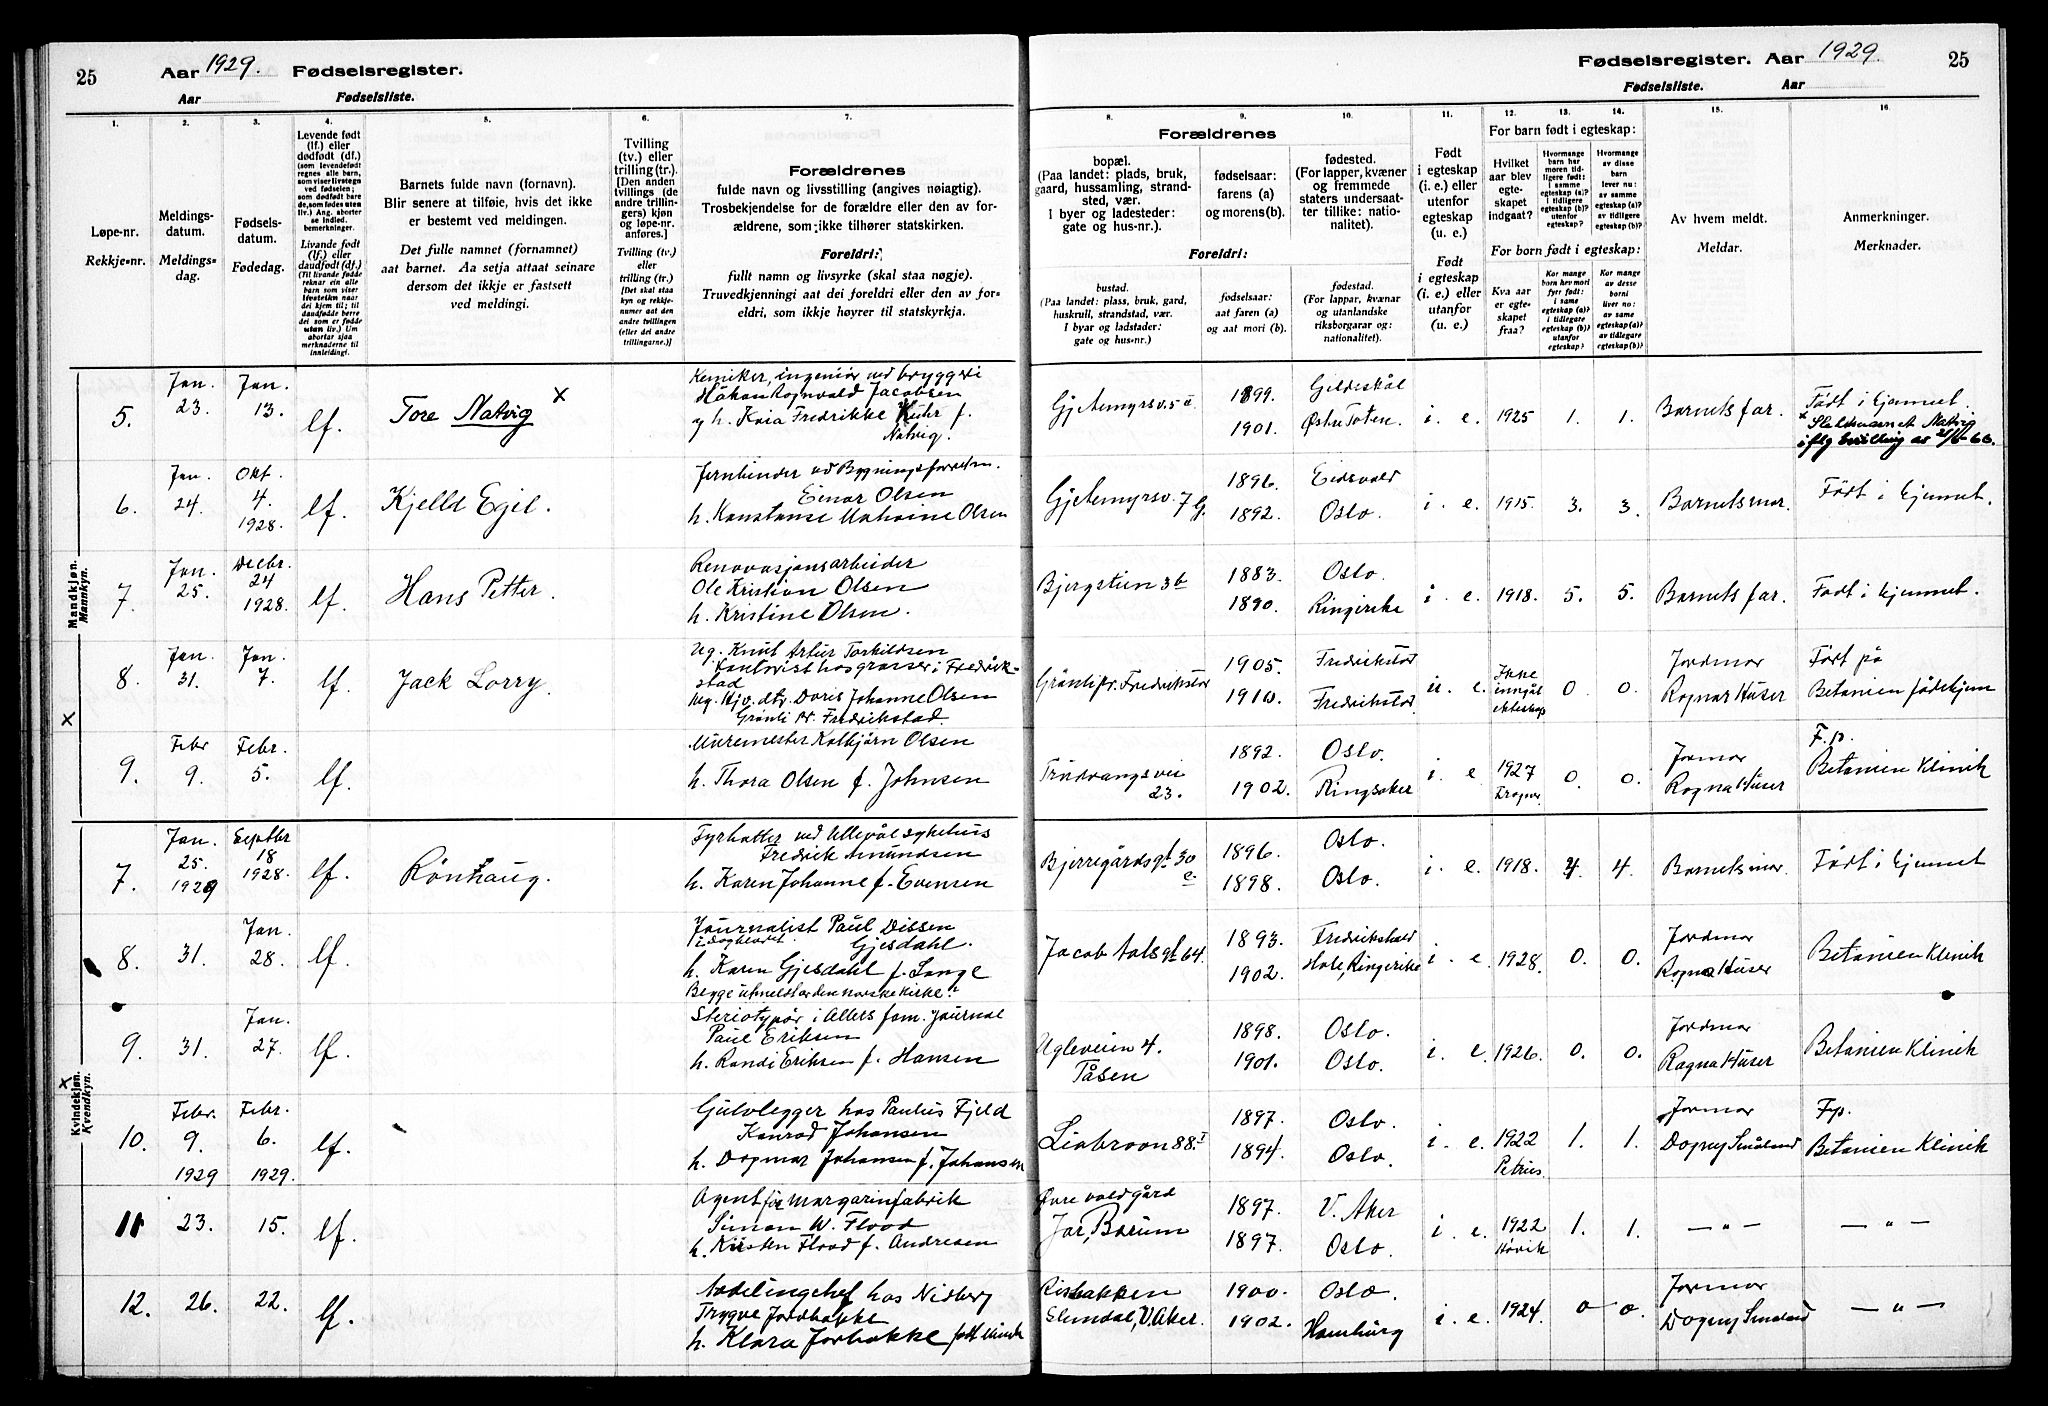 25 Aar 1929. Fødselsregister.
Aar Fødselsliste.
Fødselsregister. Aar 1929. 25
Fødselsliste. Aar
1.
Løpe-nr.
Rekkje-nr.
2.
Meldings-
datum.
Meldings-
dag.
3.
Fødsels-
datum.
Fødedag.
4.
Levende født
(lf.) eller
dødfødt (df.)
(som levendefødt
regnes alle barn,
som viser livstegn
ved fødselen;
som dødfødt bare
de, som fødes uten
liv.) Ang. aborter
se indled.
bemerkninger.
Livande født
(lf.) eller
daudfødt (df.)
(Til livande fødde
reknar ein alle
barn som viser
livsteikn naar
dei kjem til; til
daudfødde berre
dei som er fødde
utan liv.) Um
abortar sjaa
merknaderne til
innleiding.
5.
Barnets fulde navn (fornavn).
Blir senere at tilføie, hvis det ikke
er bestemt ved meldingen.
Det fulle namnet (fornamnet)
aat barnet. Aa setja attaat seinare
dersom det ikkje er fastsett
ved meldingi.
6.
Tvilling
(tv.) eller
trilling (tr.)
[Den anden
tvillings (de
andre trillin-
gers) kjøn
og løpe-nr.
anføres.]
Tvilling (tv.)
eller
trilling (tr.)
[Det skal staa
kyn og rekkje-
numer aat den
andre tvillingen
(eller dei andre
trillingarne.)]
7.
Forældrenes
fulde navn og livsstilling (angives nøiagtig).
Trosbekjendelse for de forældre eller den av for-
ældrene, som ikke tilhører statskirken.
Foreldri:
fullt namn og livsyrke (skal staa nøgje).
Truvedkjenningi aat dei foreldri eller den av for-
eldri, som ikkje høyrer til statskyrkja.
Forældrenes
8.
bopæl.
(Paa landet: plads, bruk,
gaard, hussamling, strand-
sted, vær.
I byer og ladesteder:
gate og hus-nr.).
9.
fødselsaar:
farens (a)
og morens (b).
10.
fødested.
(For lapper, kvæner
og fremmede
staters undersaat-
ter tillike: natio-
nalitet).
Foreldri:
bustad.
(Paa landet: plass, bruk, gard,
huskrull, strandstad, vær.
I byar og ladstader:
gate og hus-nr.)
fødselsaar:
aat faren (a)
og aat mori (b).
fødestad.
(For lappar, kvænar
og utanlandske
riksborgarar og:
nationalitet).
11.
Født
i egteskap
(i. e.) eller
utenfor
egteskap
(u. e.)
Født
i egteskap
(i. e.) eller
utanfor
(u. e.)
For barn født i egteskap:
12.
Hvilket
aar blev
egte-
skapet
indgaat?
13.
Hvormange
barn har
moren tidli-
gere født:
i samme
egteskap (a)?
i tidligere
egteskap (b)?
utenfor
egteskap?
14.
Hvormange
av disse
barn
lever nu:
av samme
egteskap (a)?
av tidligere
egteskap (b)?
For born født i egteskap:
Kva aar
er egte-
skapet
fraa?
Kor mange
born hev mori
fyrr født:
i same
egteskap (a)?
i tidlegare
egteskap (b)?
utanfor
egteskap?
Kor mange
av desse
borni
liver no:
av same
egteskap (a)?
av tidlegare
egteskap (b)?
15.
Av hvem meldt.
Meldar.
16.
Anmerkninger.
Merknader.
Mandkjøn.
Mannkyn.
5. Jan. 23. Jan. 13. lf. Tore Natvig x
Kemiker, ingeniør ved bryggeri
Håkon Rognvald Jacobsen
g. h. Kaia Fredrikke f.
Natvig.
Gjetemyrsv. 5 1899. 1901. Gildeskål Østre Toten. i. e. 1925 1. 1. Barnets far. Født i hjemmet.
x Slektsnavnet Natvig
iflg bevilling av
6. Jan. 24. Okt. 4. 1928. lf. Kjell Egil.
Jernbinder ved Bygningsforretn.
Einar Olsen
h. Konstanse Olsen
Gjetemyrsv. 7 G. 1896. 1892. Eidsvold Oslo. i. e. 1915. 3. 3. Barnets mor. Født i hjemmet.
7. Jan. 25. Decbr. 24 1928. lf. Hans Petter.
Renovasjonsarbeider
Ole Kristian Olsen
h. Kristine Olsen.
Bjergstien 3b 1883. 1890. Oslo. Ringerike i. e. 1918. 5. 5. Barnets far. Født i hjemmet.
8. Jan. 31. Jan. 7. lf. Jack Lorry.
Ug. Knut Artur Torkildsen
Kontorist hos grosser i Fredrik-
stad
Ug. Hjv. dtr. Doris Johanne Olsen
Grønli pr. Fredrikstad.
Grønli pr. Fredrikstad 1905. 1910. Fredrikstad Fredrikstad. u. e. Ikke inngåt ekteskap 0. 0. Jordmor Ragna Huser Født på Betanien fødehjem
x
9. Febr 9. Febr. 5. lf.
Murmester Kolbjørn Olsen
h. Thora Olsen f. Johnsen
Trudvangsvei 23. 1892. 1902. Oslo. Ringsaker i. e. 1927 Frogner 0. 0. Jormor Ragna Huser F.p. Betanien Klinik
Kvindekjøn.
Kvendkyn.
7. Jan. 25. 1929 Septbr 18 1928. lf. Rønnaug.
Fyrbøter ved Ullevål sykehus
Fredrik Amundsen
h. Karen Johanne f. Evensen
Bjerregårdsgt 30 e. 1896. 1898. Oslo. Oslo. i. e. 1918. 4. 4. Barnets mor. Født i hjemmet
8. 31. Jan. 28. lf.
Journalist Paul Dissen
i Dagbladet. Gjesdahl.
h. Karen Gjesdahl f. Lange
Begge utmeldt av den norske kirke.
Jacob Aalsgt 64. 1893. 1902. Fredrikshald Hole, Ringerike i. e. 1928. 0. 0. Jordmor Ragna Huser Betanien Klinik
9. 31. Jan. 27. lf.
Steriotypør i Allers fam. journal
Paul Eriksen
h. Randi Eriksen f. Hansen
Ugleveien 4. Tåsen 1898. 1901. Oslo. Oslo. i. e. 1926. 0. 0. Jordmor Ragna Huser Betanien Klinik
x
10. Febr. 9. 1929 Febr. 6. 1929. lf.
Gulvlegger hos Paulus Fjeld
Konrad Johansen
h. Dagmar Johansen f. Johansen
Liabroen 88. I 1897. 1894. Oslo. Oslo. i. e. 1922 Petrus. 1. 1. Jormor Dagny Småland Fp. Betanien Klinik
11 23. 15. lf.
Agent for margarinfabrik
Simon W. Flood
h. Kirsten Flood f. Andresen
Øvre voldgård Jar, Bærum 1897. 1897. V. Aker Oslo. i. e. 1922 Høvik 1. 1. — " — — " —
12. 26. 22. lf.
Avdelingschef hos Nidberg
Trygve Jordbakke
h. Klara Jorbakke født
Risbakken Slemdal, V. Aker. 1900. 1902. Oslo. Hamburg i. e. 1924. 0 0. Jormor Dagny Småland — " —